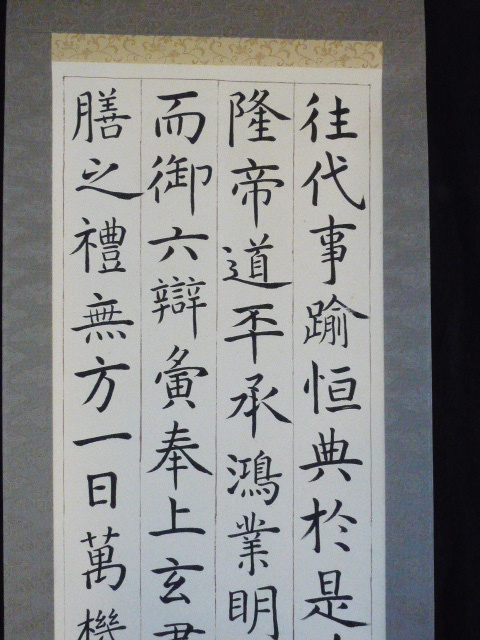 往代事踰恒典於是
隆帝道丕承鴻業明
而御六辯寅奉上玄
膳之禮無方一日萬機